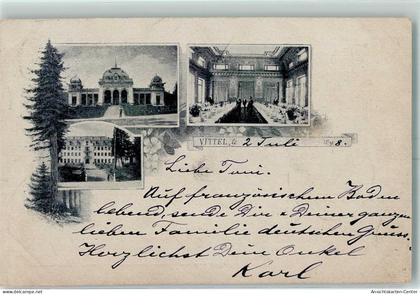 VITTEL, le 2 Juli 189 8.
Liebe Toni.
Auf französischem Boden
lebend, sende Dir u Deiner ganzen
lieben Familie deutschen Gruss.
Herzlichst Dein Onkel
Karl
akpool.de
Ansichtskarten-Center